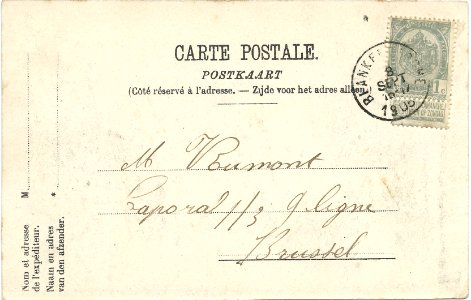 CARTE POSTALE.
POSTKAART
(Côté réservé à l'adresse. — Zijde voor het adres alleen)
1 c
SEPT
1905
M Voumont
Caporal 1/3 9 ligne
Brussel
M
*
Nom et adresse
de l'expéditeur.
Naam en adres
van den afzender.